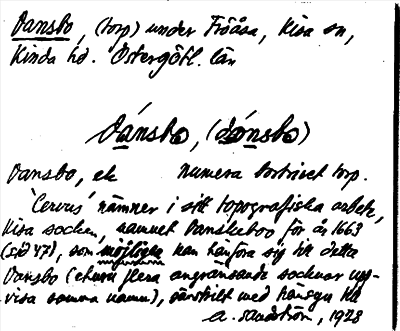 Dansbo, (torp) under Fröåsa, Kisa sn,
Kinda hd. Östergötl. län
Dánsbo, (dónsbo)
Dansbo, ek numera bortrivet torp.
"Cervus" nämner i sitt topografiska arbete,
Kisa socken, namnet Dansketoo för år 1663
(sid 47), som möjligen kan hänföra sig till detta
Dansbo (ehuru flera angränsande socknar upp-
visa samma namn), särskilt med hänsyn till
A. Sandström, 1928